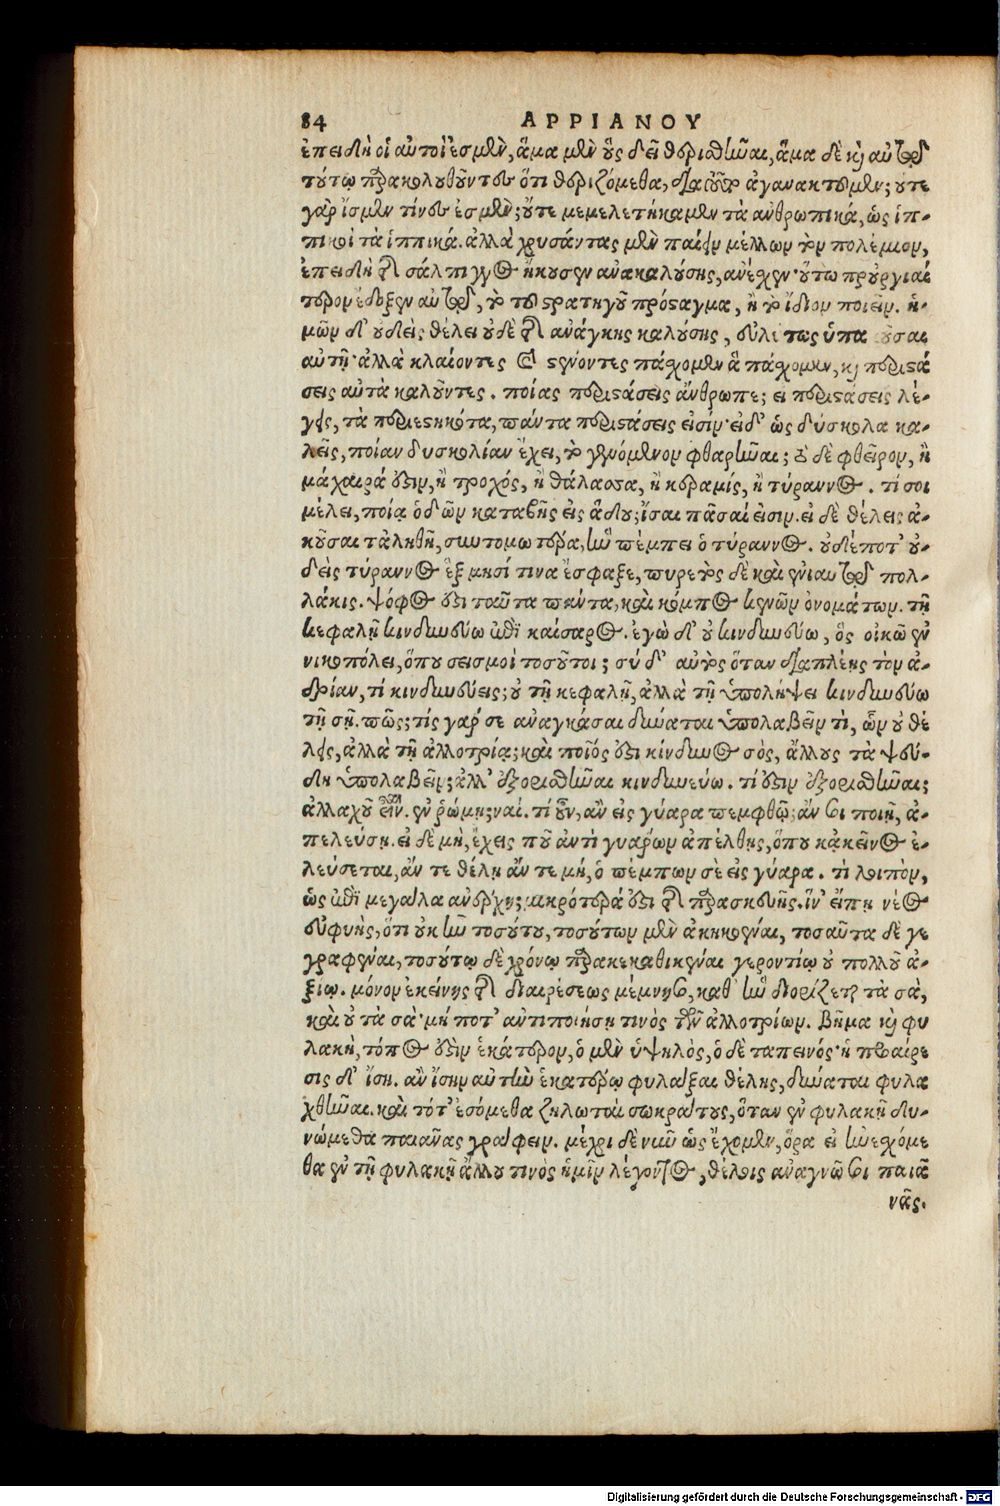 84 ΑΡΡΙΑΝΟΥ
ἐπειδὴ οἱ αὐτοί ἐσμεν, ἅμα μὲν οὓς δεῖ θερισθῆναι, ἅμα δὲ κỳ αὐτῷ
τούτῳ παρακολουθοῦντες ὅτι θεριζόμεθα, διὰ τοῦτο ἀγανακτοῦμεν; οὔτε
γὰρ ἴσμεν τίνες ἐσμὲν; οὔτε μεμελετήκαμεν τὰ ἀνθρωπικά, ὡς ἱπ-
πικοὶ τὰ ἱππικά. ἀλλὰ χρυσάντας μὲν παίειν μέλλων τὸν πολέμιον,
ἐπειδὴ τῆς σάλπιγγος ἤκουσεν ἀνακαλούσης, ἀνέχεν· οὕτω προὐργιαί
τερον ἔδοξεν αὐτῷ, τὸ τοῦ στρατηγοῦ πρόσταγμα, ἢ τὸ ἴδιον ποιεῖν. ἡ-
μῶν δ' οὐδεὶς θέλει οὐδὲ τῆς ἀνάγκης καλούσης, εὐλύτως ὑπακοῦσαι
αὐτῇ· ἀλλὰ κλαίοντες καὶ στένοντες πάσχομεν ἃ πάσχομεν, κỳ περιστά
σεις αὐτὰ καλοῦντες. ποίας περιστάσεις ἄνθρωπε; εἰ περιστάσεις λέ-
γεις, τὰ περιεστηκότα, πάντα περιστάσεις εἰσίν· εἰ δ' ὡς δύσκολα κα-
λεῖς, ποίαν δυσκολίαν ἔχει, τὸ γενόμενον φθαρῆναι; τὸ δὲ φθεῖρον, ἢ
μάχαιρά ἐστιν, ἢ τροχός, ἢ θάλασσα, ἢ κεραμίς, ἢ τύραννος. τί σοι
μέλει, ποίᾳ ὁδῷ καταβῇς εἰς ᾅδου; ἴσαι πᾶσαί εἰσιν. εἰ δὲ θέλεις ἀ-
κοῦσαι τἀληθῆ, συντομωτέρα, ἣν πέμπει ὁ τύραννος. οὐδέποτ' οὐ-
δεὶς τύραννος ἓξ μησί τινα ἔσφαξε, πυρετὸς δὲ καὶ ἐνιαυτῷ πολ-
λάκις. ψόφος ἐστὶ ταῦτα πάντα, καὶ κόμπος κενῶν ὀνομάτων. τῇ
κεφαλῇ κινδυνεύω ἐπὶ καίσαρος. ἐγὼ δ' οὐ κινδυνεύω, ὃς οἰκῶ ἐν
νικοπόλει, ὅπου σεισμοὶ τοσοῦτοι; σύ δ' αὐτὸς ὅταν διαπλέῃς τὸν ἀ-
δρίαν, τί κινδυνεύεις; οὐ τῇ κεφαλῇ, ἀλλὰ τῇ ὑπολήψει κινδυνεύω
τῇ σῇ. πῶς; τίς γάρ σε ἀναγκάσαι δύναται ὑπολαβεῖν τὶ, ὧν οὐ θέ
λεις, ἀλλὰ τῇ ἀλλοτρίᾳ; καὶ ποῖός ἐστι κίνδυνος σὸς, ἄλλους τὰ ψευ-
δῆ ὑπολαβεῖν; ἀλλ' ἐξορισθῆναι κινδυνεύω. τί ἐστιν ἐξορισθῆναι;
ἀλλαχοῦ εἶναι. ἐν ῥώμῃ; ναί. τί οὖν, ἂν εἰς γύαρα πεμφθῶ; ἄν σοι ποιῇ, ἀ-
πελεύσῃ. εἰ δὲ μὴ, ἔχεις ποῦ ἀντὶ γυάρων ἀπέλθῃς, ὅπου κἀκεῖνος ἐ-
λεύσεται, ἄν τε θέλῃ ἄν τε μή, ὁ πέμπων σὲ εἰς γύαρα. τί λοιπὸν,
ὡς ἐπὶ μεγάλα ἀνέρχῃ; μικρότερά ἐστι τῆς παρασκευῆς. ἵν' εἴπῃ νέος
εὐφυὴς, ὅτι οὐκ ἦν τοσούτου, τοσούτων μὲν ἀκηκοέναι, τοσαῦτα δὲ γε
γραφέναι, τοσούτῳ δὲ χρόνῳ παρακεκαθικέναι γεροντίῳ οὐ πολλοῦ ἀ-
ξίῳ. μόνον ἐκείνης τῆς διαιρέσεως μέμνησο, καθ' ἣν διορίζεται τὰ σὰ,
καὶ οὐ τὰ σὰ· μή ποτ' ἀντιποιήσῃ τινὸς τῶν ἀλλοτρίων. βῆμα κỳ φυ
λακὴ, τόπος ἐστὶν ἑκάτερον, ὁ μὲν ὑψηλὸς, ὁ δὲ ταπεινός· ἡ προαίρε
σις δ' ἴση. ἂν ἴσην αὐτὴν ἑκατέρῳ φυλάξαι θέλῃς, δύναται φυλα
χθῆναι. καὶ τότ' ἐσόμεθα ζηλωταὶ σωκράτους, ὅταν ἐν φυλακῇ δυ-
νώμεθα παιᾶνας γράφειν. μέχρι δὲ νῦν ὡς ἔχομεν, ὅρα εἰ ἠνεχόμε
θα ἐν τῇ φυλακῇ ἄλλου τινὸς ἡμῖν λέγοντος, θέλεις ἀναγνῶ σοι παιᾶ
νᾶς.
Digitalisierung gefördert durch die Deutsche Forschungsgemeinschaft - DFG